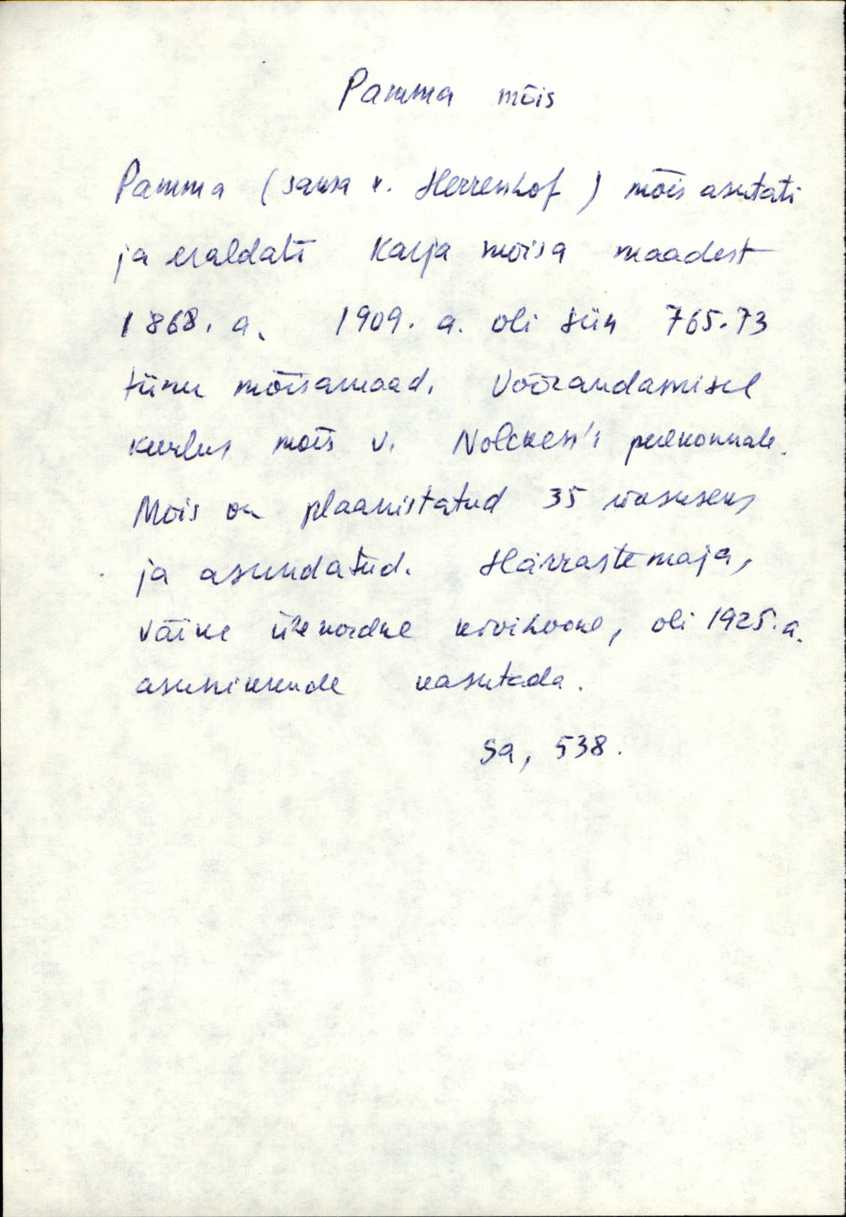 Pamma mõis
Pamma (saksa k. Herrenhof) mõis asutati
ja eraldati Karja mõisa maadest
1868. a. 1909. a. oli siin 765.73
tiinu mõisamaad. Võõrandamisel
kuulus mõis v. Nolcken's perekonnale.
Mõis on plaanistatud 35 üksuseks
ja asundatud. Härrastemaja,
väike ühekordne kivihoone, oli 1925. a.
asunikkude kasutada.
Sa, 538.